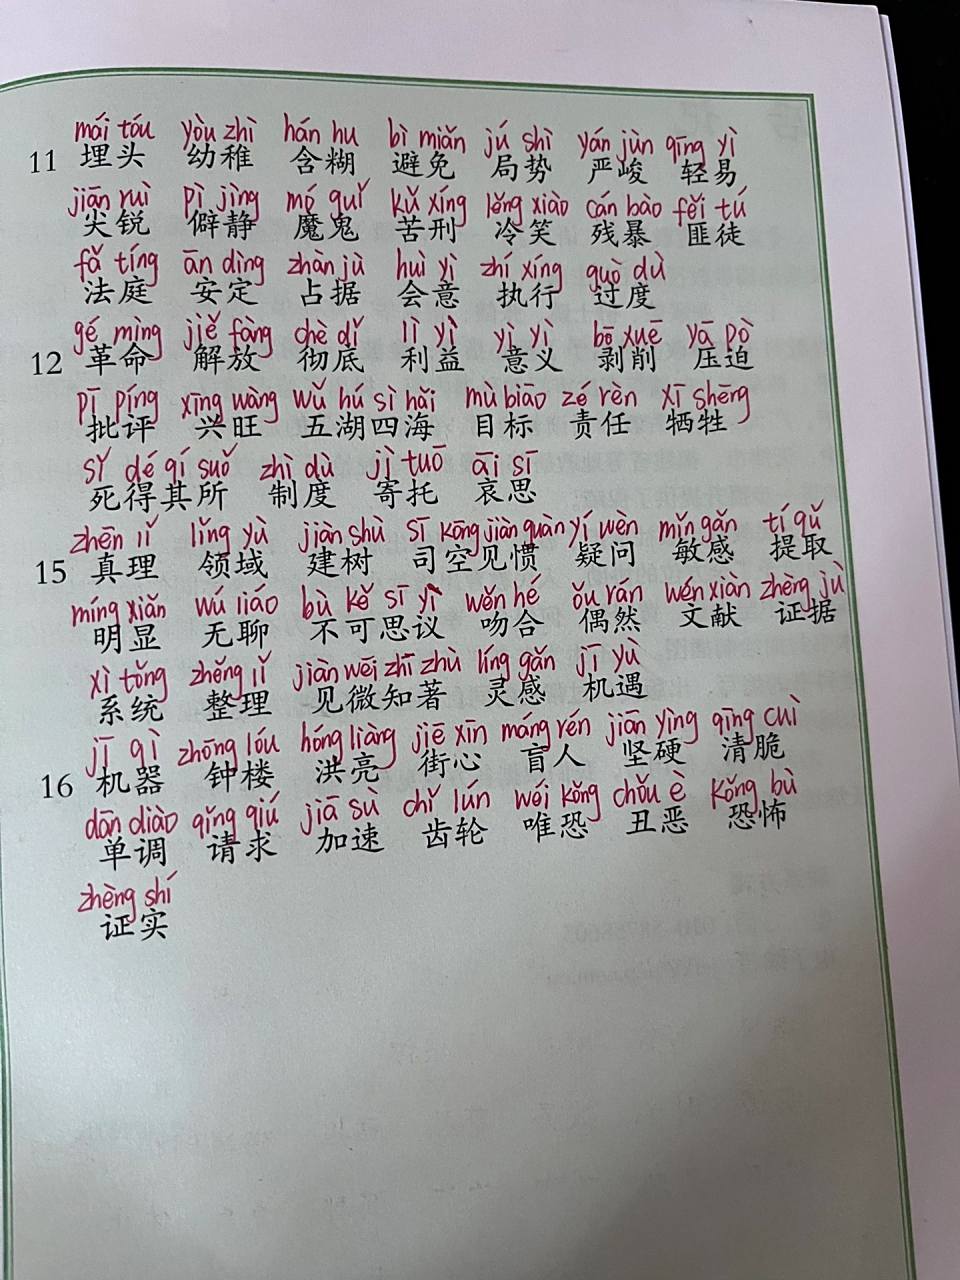 mái tóu yòu zhì hán hu bì miǎn jú shì yán jùn qīng yì
11 埋头 幼稚 含糊 避免 局势 严峻 轻易
jiān ruì pì jìng mó guǐ kǔ xíng lěng xiào cán bào fěi tú
尖锐 僻静 魔鬼 苦刑 冷笑 残暴 匪徒
fǎ tíng ān dìng zhàn jù huì yì zhí xíng guò dù
法庭 安定 占据 会意 执行 过度
gé mìng jiě fàng chè dǐ lì yì yì yì bō xuē yā pò
12 革命 解放 彻底 利益 意义 剥削 压迫
pī píng xīng wàng wǔ hú sì hǎi mù biāo zé rèn xī shēng
批评 兴旺 五湖四海 目标 责任 牺牲
sǐ dé qí suǒ zhì dù jì tuō āi sī
死得其所 制度 寄托 哀思
zhēn lǐ lǐng yù jiàn shù sī kōng jiàn guàn yí wèn mǐn gǎn tí qǔ
15 真理 领域 建树 司空见惯 疑问 敏感 提取
míng xiǎn wú liáo bù kě sī yì wěn hé ǒu rán wén xiàn zhèng jù
明显 无聊 不可思议 吻合 偶然 文献 证据
xì tǒng zhěng lǐ jiàn wēi zhī zhù líng gǎn jī yù
系统 整理 见微知著 灵感 机遇
jī qì zhōng lóu hóng liàng jiē xīn máng rén jiān yìng qīng cuì
16 机器 钟楼 洪亮 街心 盲人 坚硬 清脆
dān diào qǐng qiú jiā sù chǐ lún wéi kǒng chǒu è kǒng bù
单调 请求 加速 齿轮 唯恐 丑恶 恐怖
zhèng shí
证实